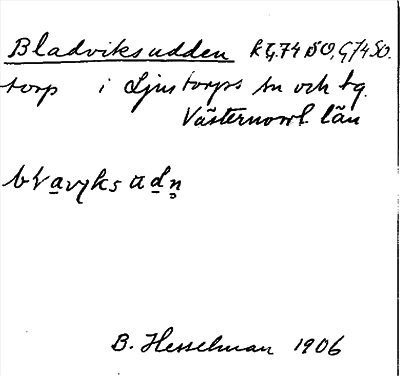 Bladviksudden k G,74 SO, G74SO.
torp i Ljustorps sn och tg.
Västernorrl. län
blavyksudn
B. Hesselman 1906